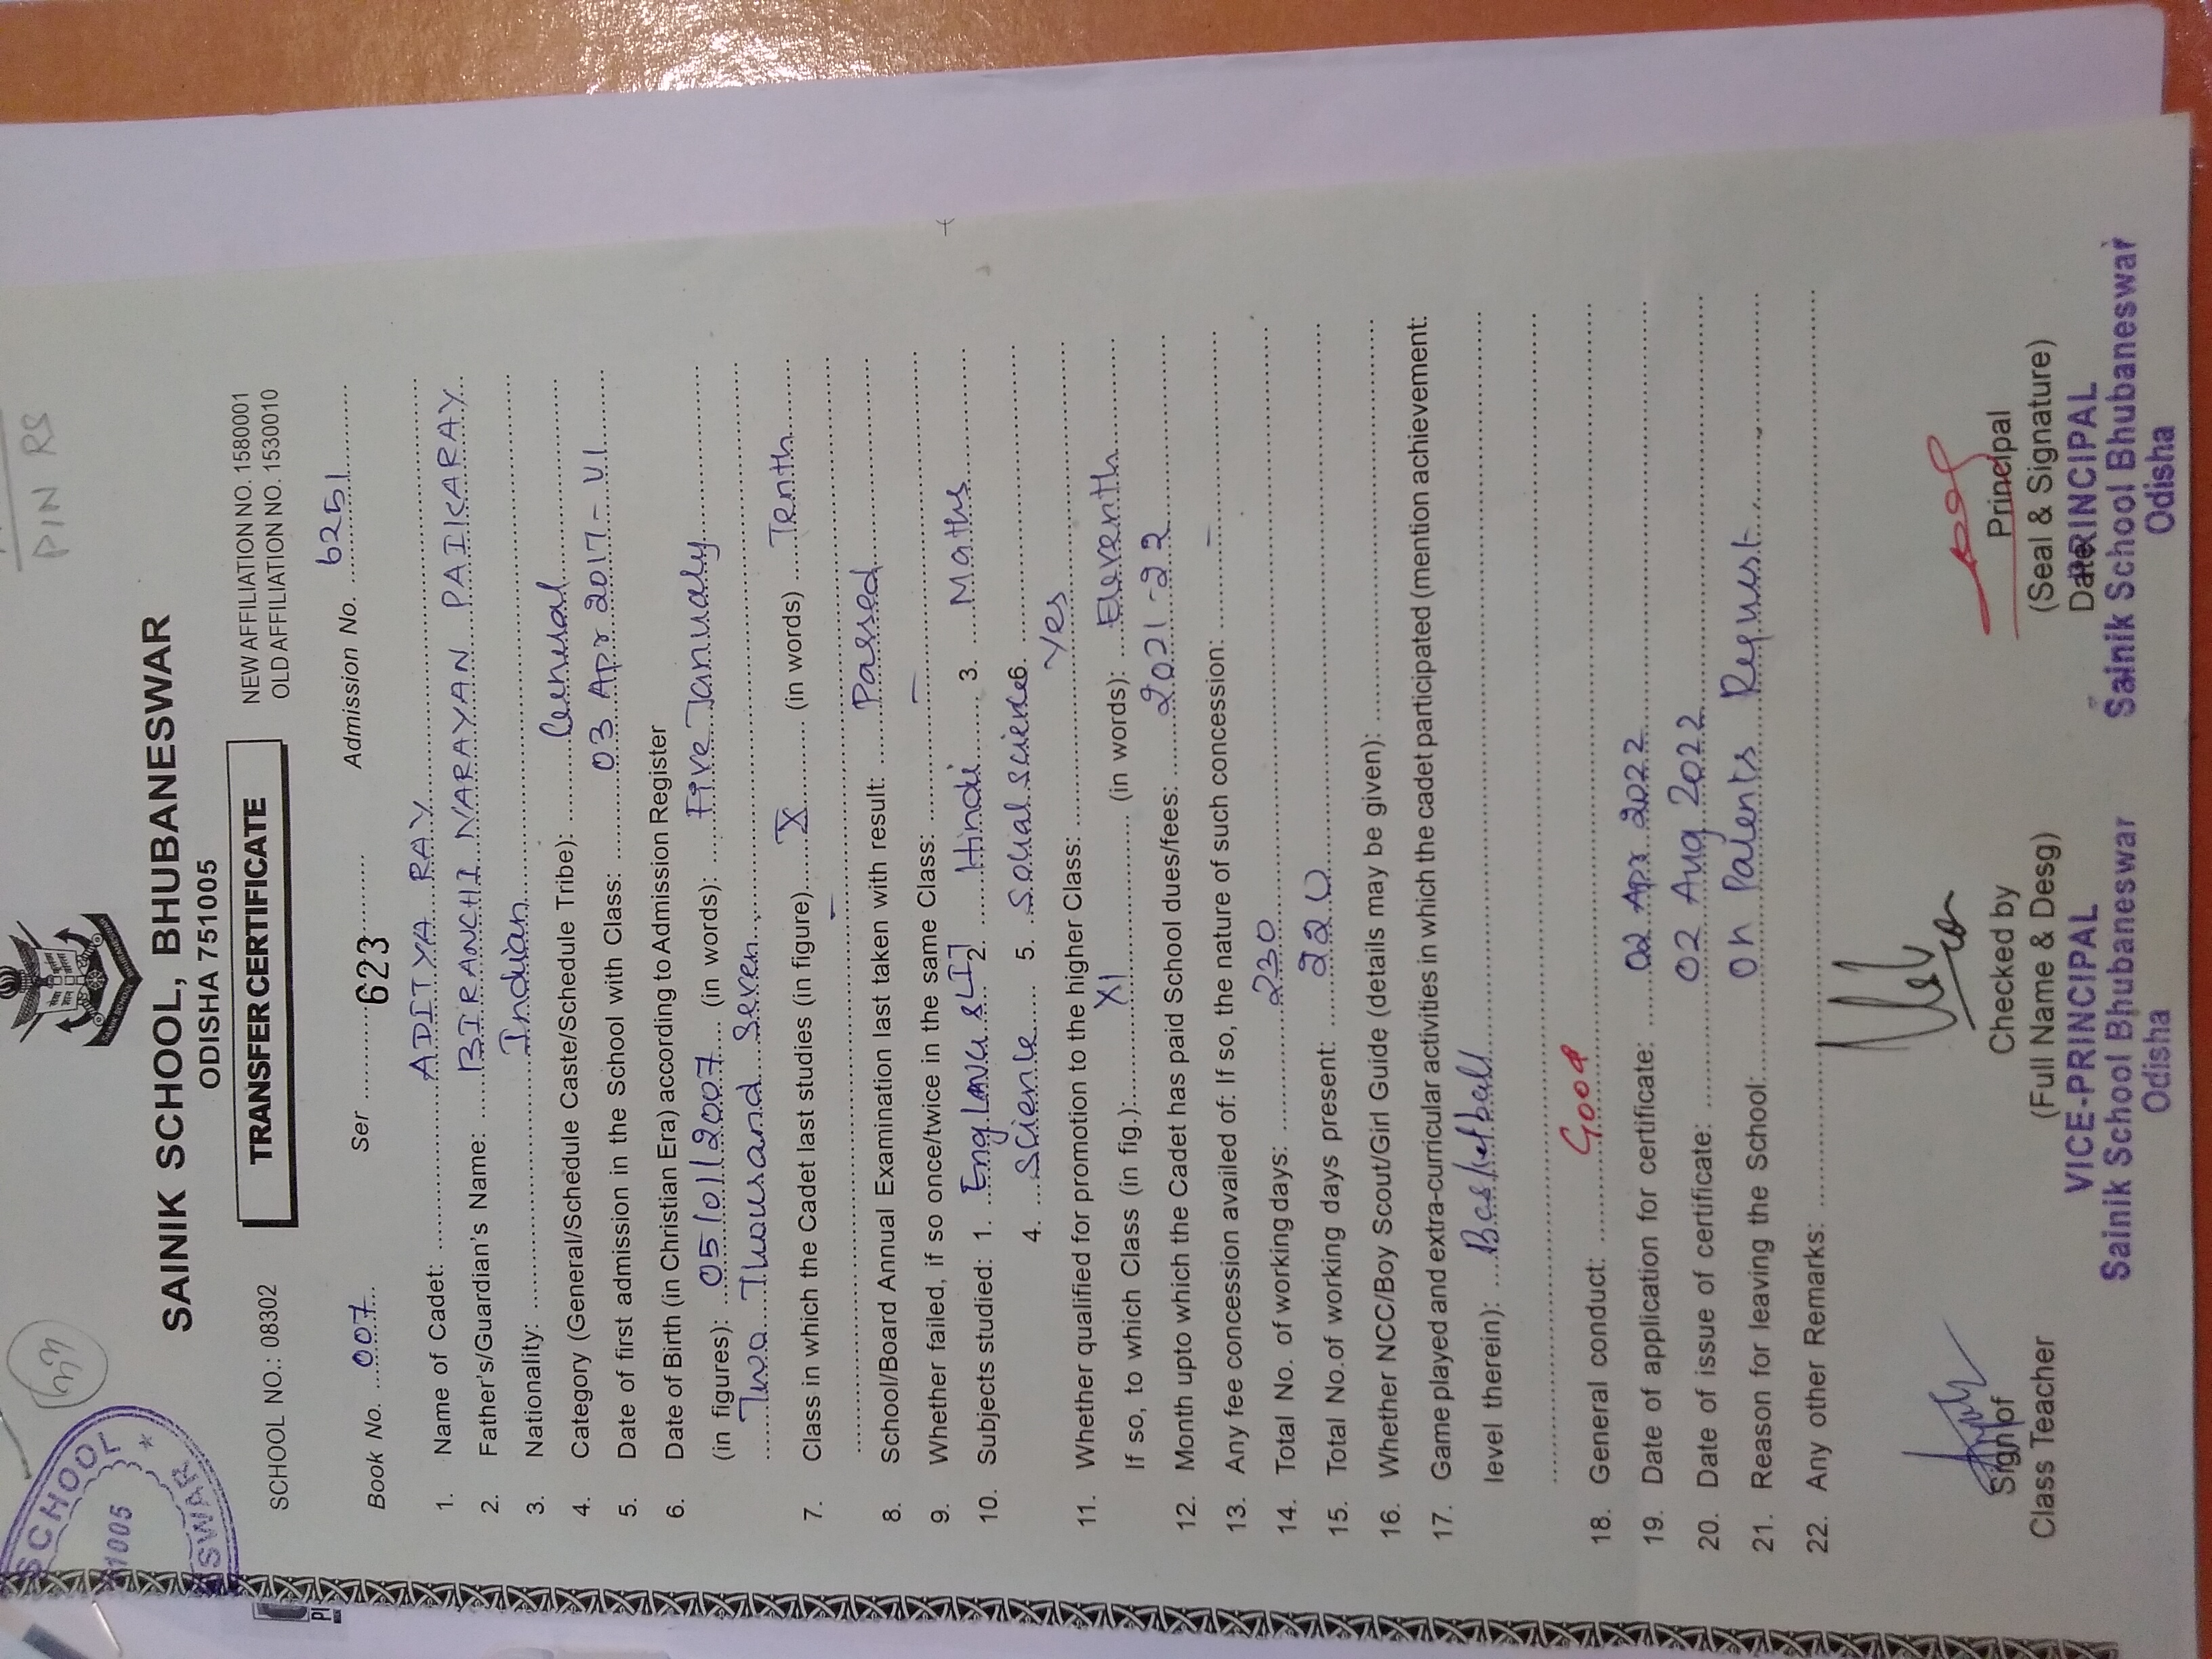 PIN RS
SCHOOL
1005
SWAR
SAINIK SCHOOL, BHUBANESWAR
ODISHA 751005
SCHOOL NO.: 08302
TRANSFER CERTIFICATE
NEW AFFILIATION NO. 1580001
OLD AFFILIATION NO. 1530010
Book No. 007 Ser 623 Admission No. 6251
1. Name of Cadet: ADITYA RAY
2. Father's/Guardian's Name: BIRANCHI NARAYAN PAIKARAY
3. Nationality: Indian
4. Category (General/Schedule Caste/Schedule Tribe): General
5. Date of first admission in the School with Class: 03 Apr 2017 - VI
6. Date of Birth (in Christian Era) according to Admission Register
(in figures): 05/01/2007 (in words): Five January
Two Thousand Seven
7. Class in which the Cadet last studies (in figure) X (in words) Tenth
8. School/Board Annual Examination last taken with result: Passed
9. Whether failed, if so once/twice in the same Class: –
10. Subjects studied: 1. Eng LANG & LIT 2. Hindi 3. Maths
4. Science 5. Social Science 6.
11. Whether qualified for promotion to the higher Class: Yes
If so, to which Class (in fig.): XI (in words): Eleventh
12. Month upto which the Cadet has paid School dues/fees: 2021-22
13. Any fee concession availed of: If so, the nature of such concession: –
14. Total No. of working days: 230
15. Total No. of working days present: 220
16. Whether NCC/Boy Scout/Girl Guide (details may be given):
17. Game played and extra-curricular activities in which the cadet participated (mention achievement:
level therein): Basketball
18. General conduct: Good
19. Date of application for certificate: 02 Apr 2022
20. Date of issue of certificate: 02 Aug 2022
21. Reason for leaving the School: On Parents Request
22. Any other Remarks:
Sign of
Class Teacher
Checked by
(Full Name & Desg)
VICE-PRINCIPAL
Sainik School Bhubaneswar
Odisha
Principal
(Seal & Signature)
Date
PRINCIPAL
Sainik School Bhubaneswar
Odisha